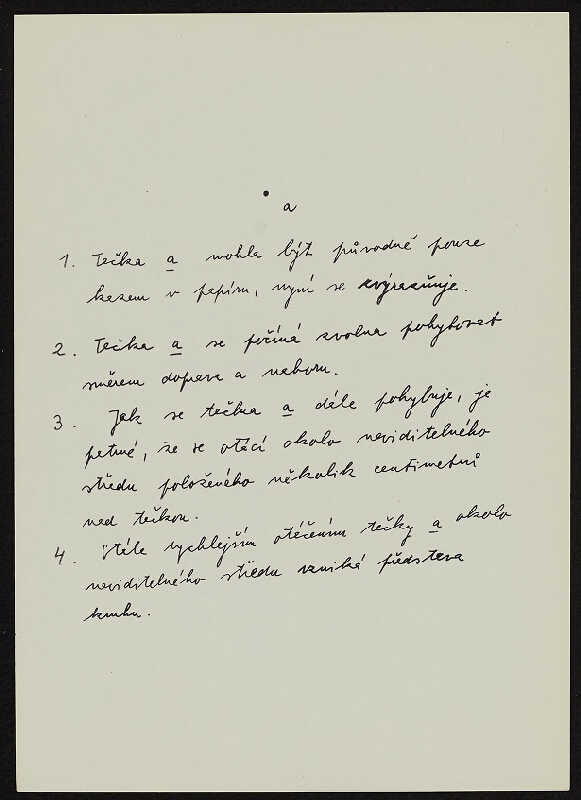 a
1. Tečka a mohla být původně pouze
kazem v papíru, nyní se zvýrazňuje.
2. Tečka a se počíná zvolna pohybovat
směrem doprava a nahoru.
3. Jak se tečka a dále pohybuje, je
patrné, že se otáčí okolo neviditelného
středu položeného několik centimetrů
nad tečkou.
4. Stále rychlejším otáčením tečky a okolo
neviditelného středu vzniká představa
kruhu.